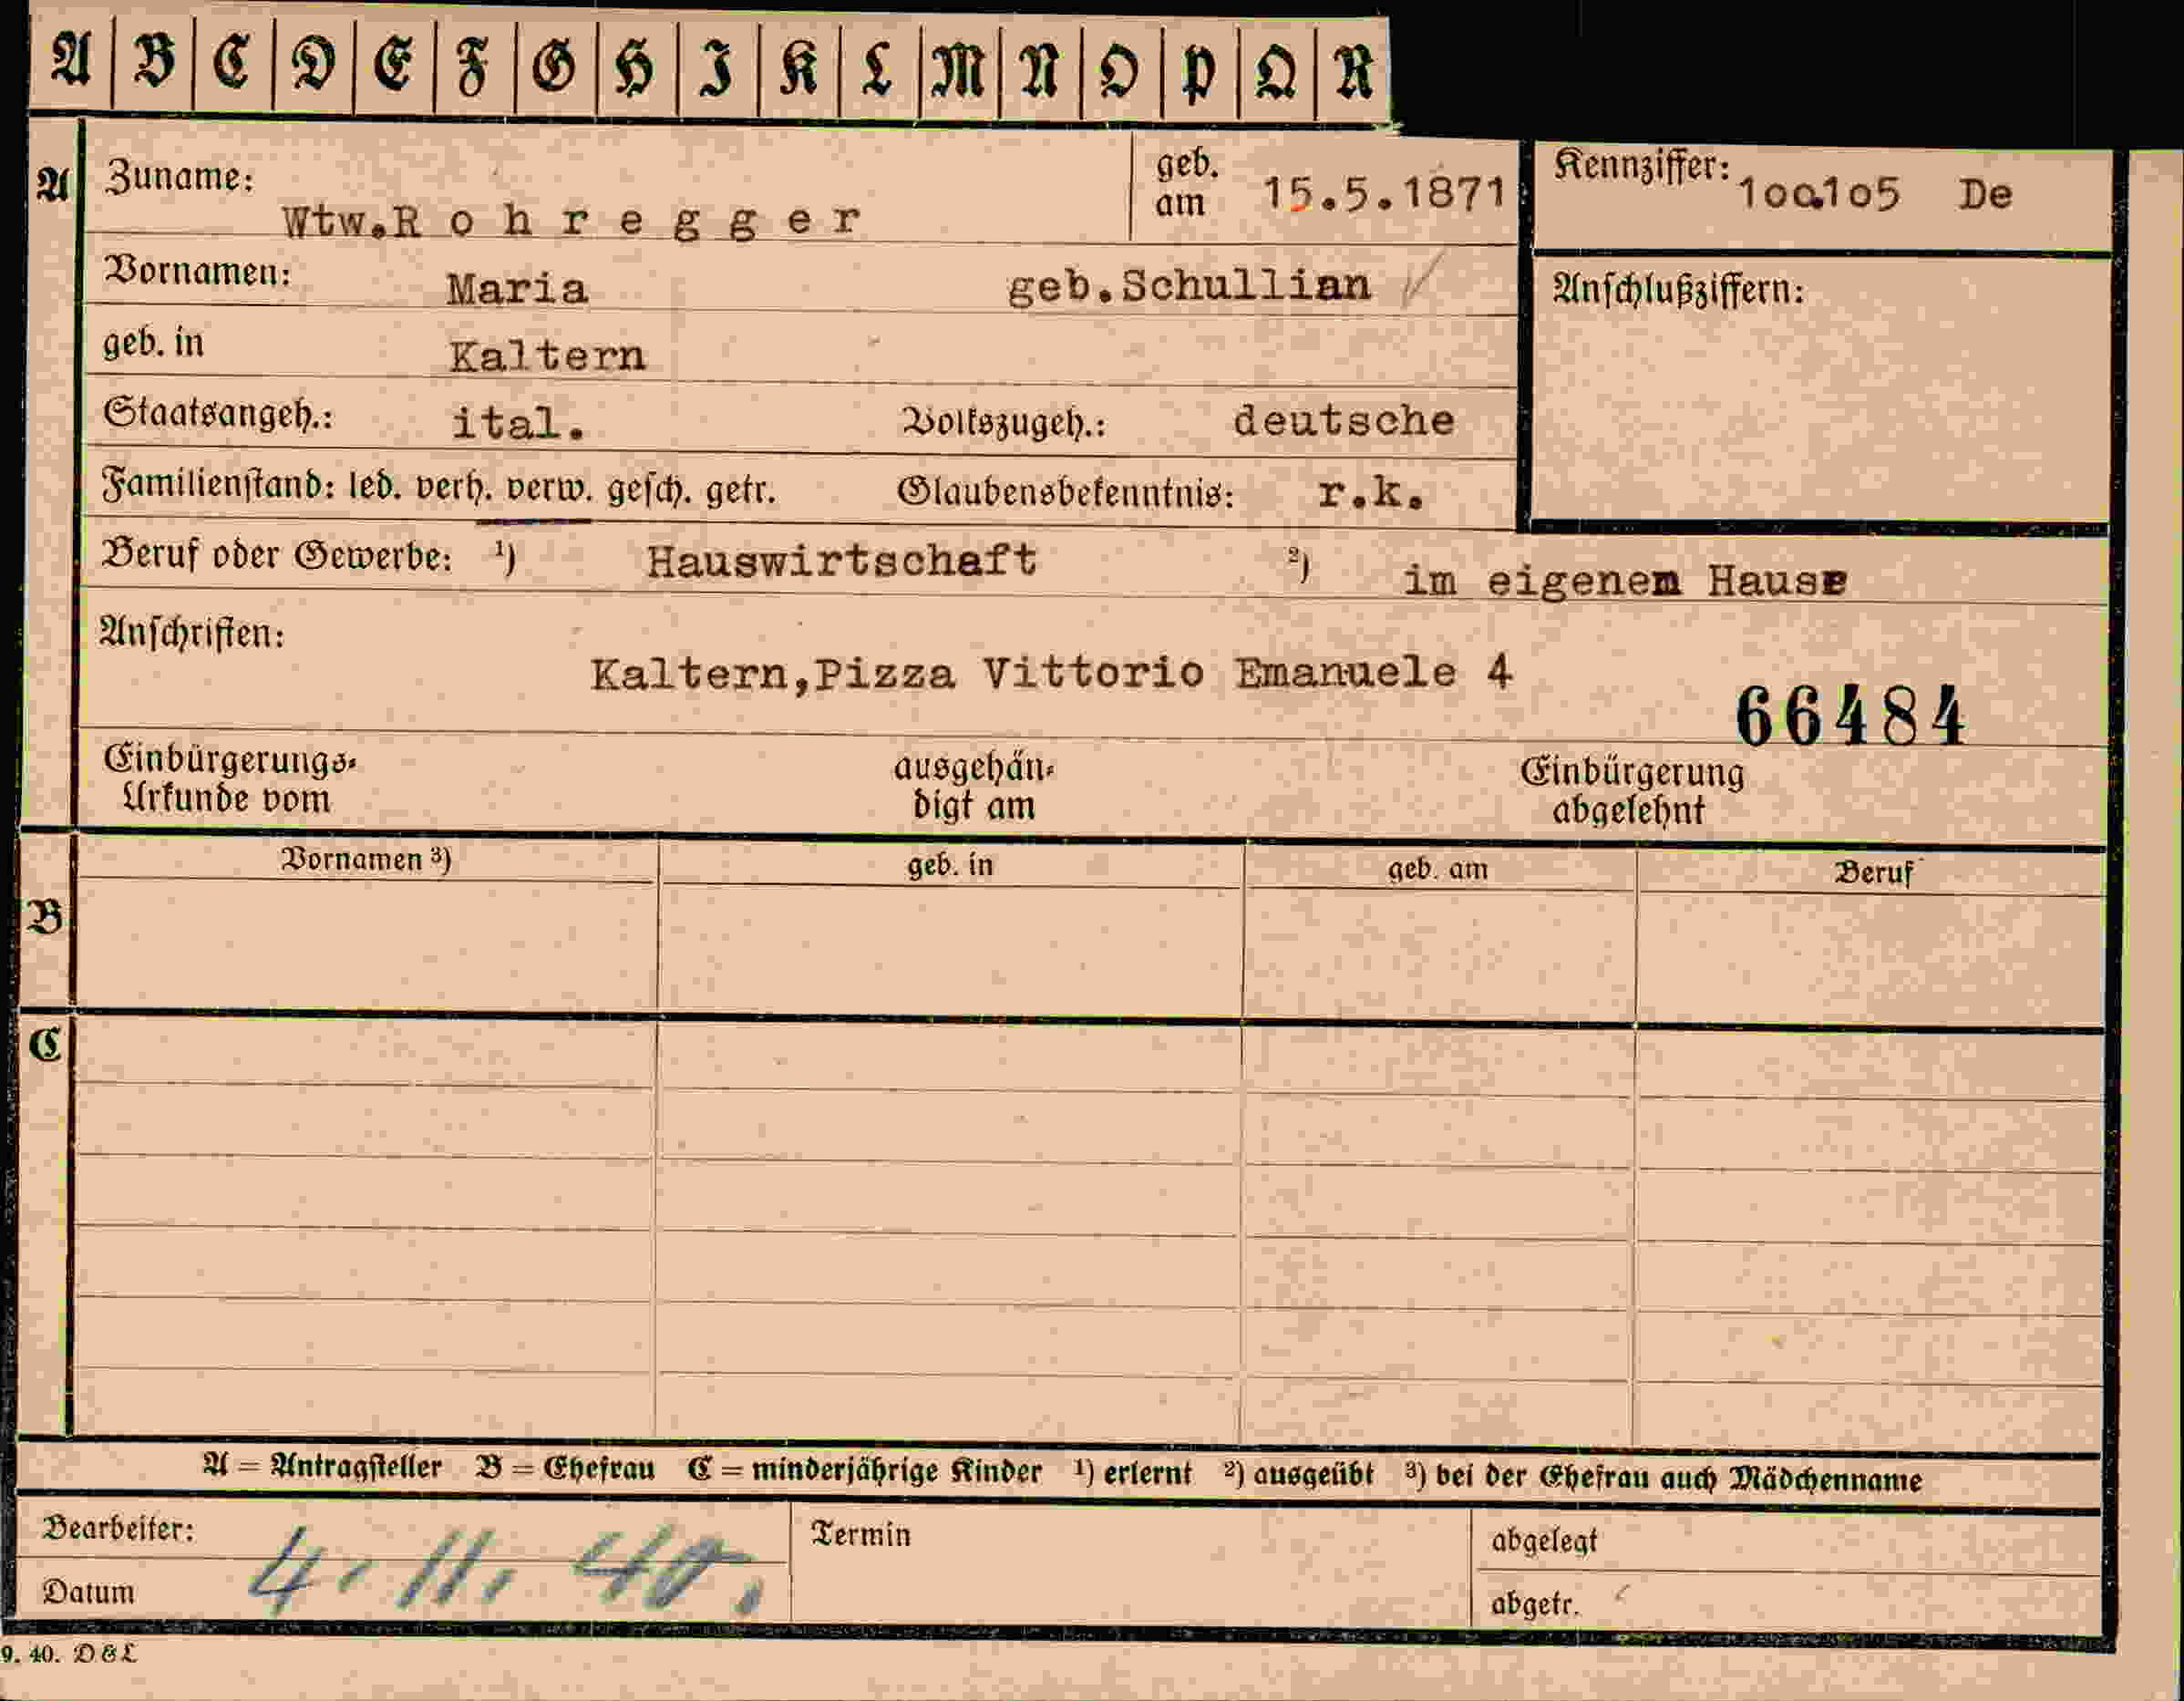 A B C D E F G H I K L M N O P Q R
A Zuname: Wtw.R o h r e g g e r geb. am 15.5.1871
Kennziffer: 100105 De
Vornamen: Maria geb.Schullian
Anschlußziffern:
geb. in Kaltern
Staatsangeh.: ital. Volkszugeh.: deutsche
Familienstand: led. verh. verw. gesch. getr. Glaubensbekenntnis: r.k.
Beruf oder Gewerbe: ¹) Hauswirtschaft ²) im eigenen Hause
Anschriften:
Kaltern,Pizza Vittorio Emanuele 4
66484
Einbürgerungs-Urkunde vom ausgehändigt am Einbürgerung abgelehnt
Vornamen ³) geb. in geb. am Beruf
B
C
A = Antragsteller B = Ehefrau C = minderjährige Kinder ¹) erlernt ²) ausgeübt ³) bei der Ehefrau auch Mädchenname
Bearbeiter: Termin abgelegt
Datum 4. 11. 40. abgetr.
9. 40. D & L